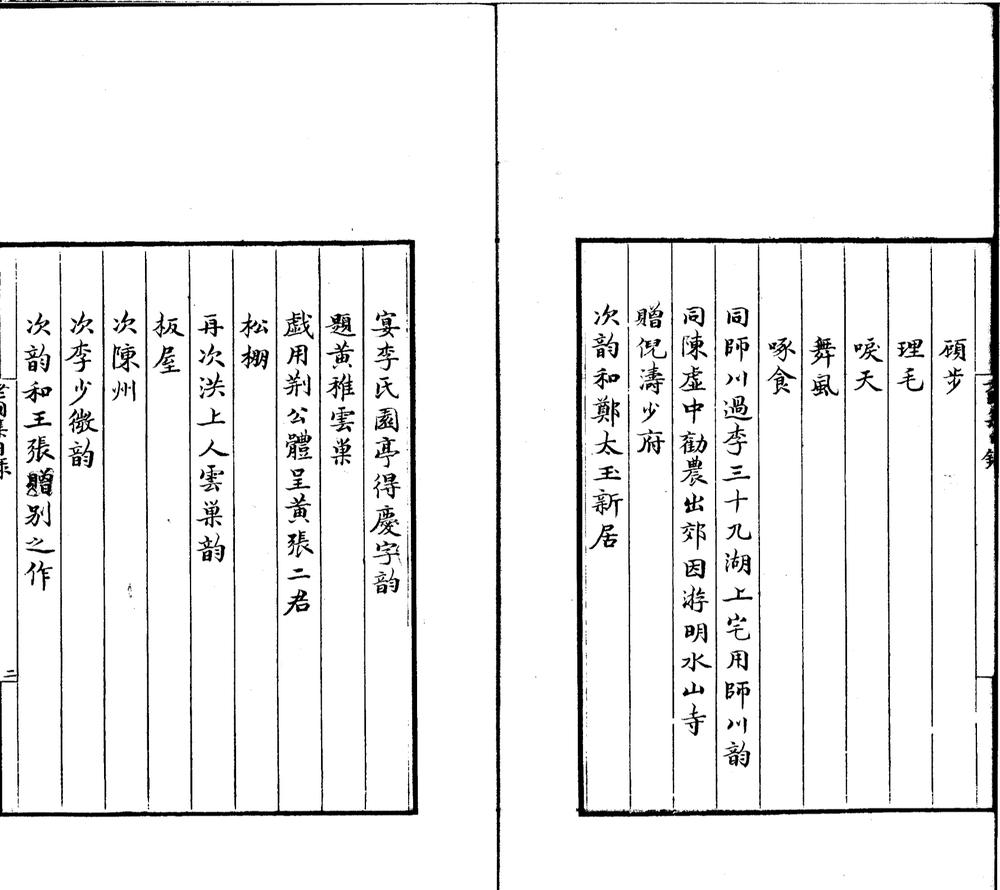 頋步
理毛
唳天
舞風
啄食
同師川過李三十九湖上宅用師川韵
同陳虛中勸農出郊因游明水山寺
贈倪濤少府
次韵和鄭太玉新居
宴李氏園亭得慶字韵
題黃稚雲巢
戯用荆公體呈黃張二君
松棚
再次洪上人雲巢韵
板屋
次陳州
次李少微韵
次韵和王張贈别之作
二